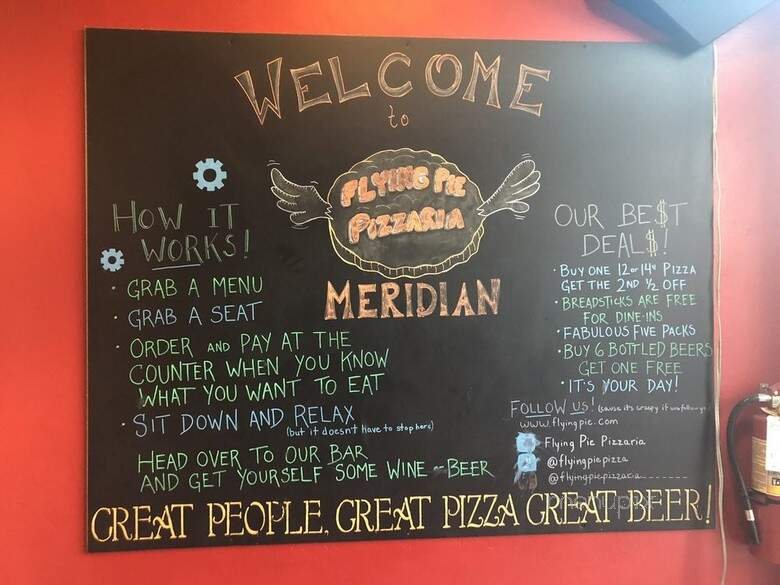 WELCOME
to
FLYING PIE
PIZZARIA
MERIDIAN
HOW IT
WORKS!
· GRAB A MENU
· GRAB A SEAT
· ORDER AND PAY AT THE
COUNTER WHEN YOU KNOW
WHAT YOU WANT TO EAT
· SIT DOWN AND RELAX
(but it doesnt have to stop here)
HEAD OVER TO OUR BAR
AND GET YOURSELF SOME WINE or BEER
OUR BE$T
DEAL$!
· BUY ONE 12 or 14" PIZZA
GET THE 2ND ½ OFF
· BREADSTICKS ARE FREE
FOR DINE-INS
· FABULOUS FIVE PACKS
· BUY 6 BOTTLED BEERS
GET ONE FREE
· IT'S YOUR DAY!
FOLLOW US! (cause its creepy if we follow
www.flyingpie.com
Flying Pie Pizzaria
@flyingpiepizza
@flyingpiepizzaria
GREAT PEOPLE, GREAT PIZZA GREAT BEER!